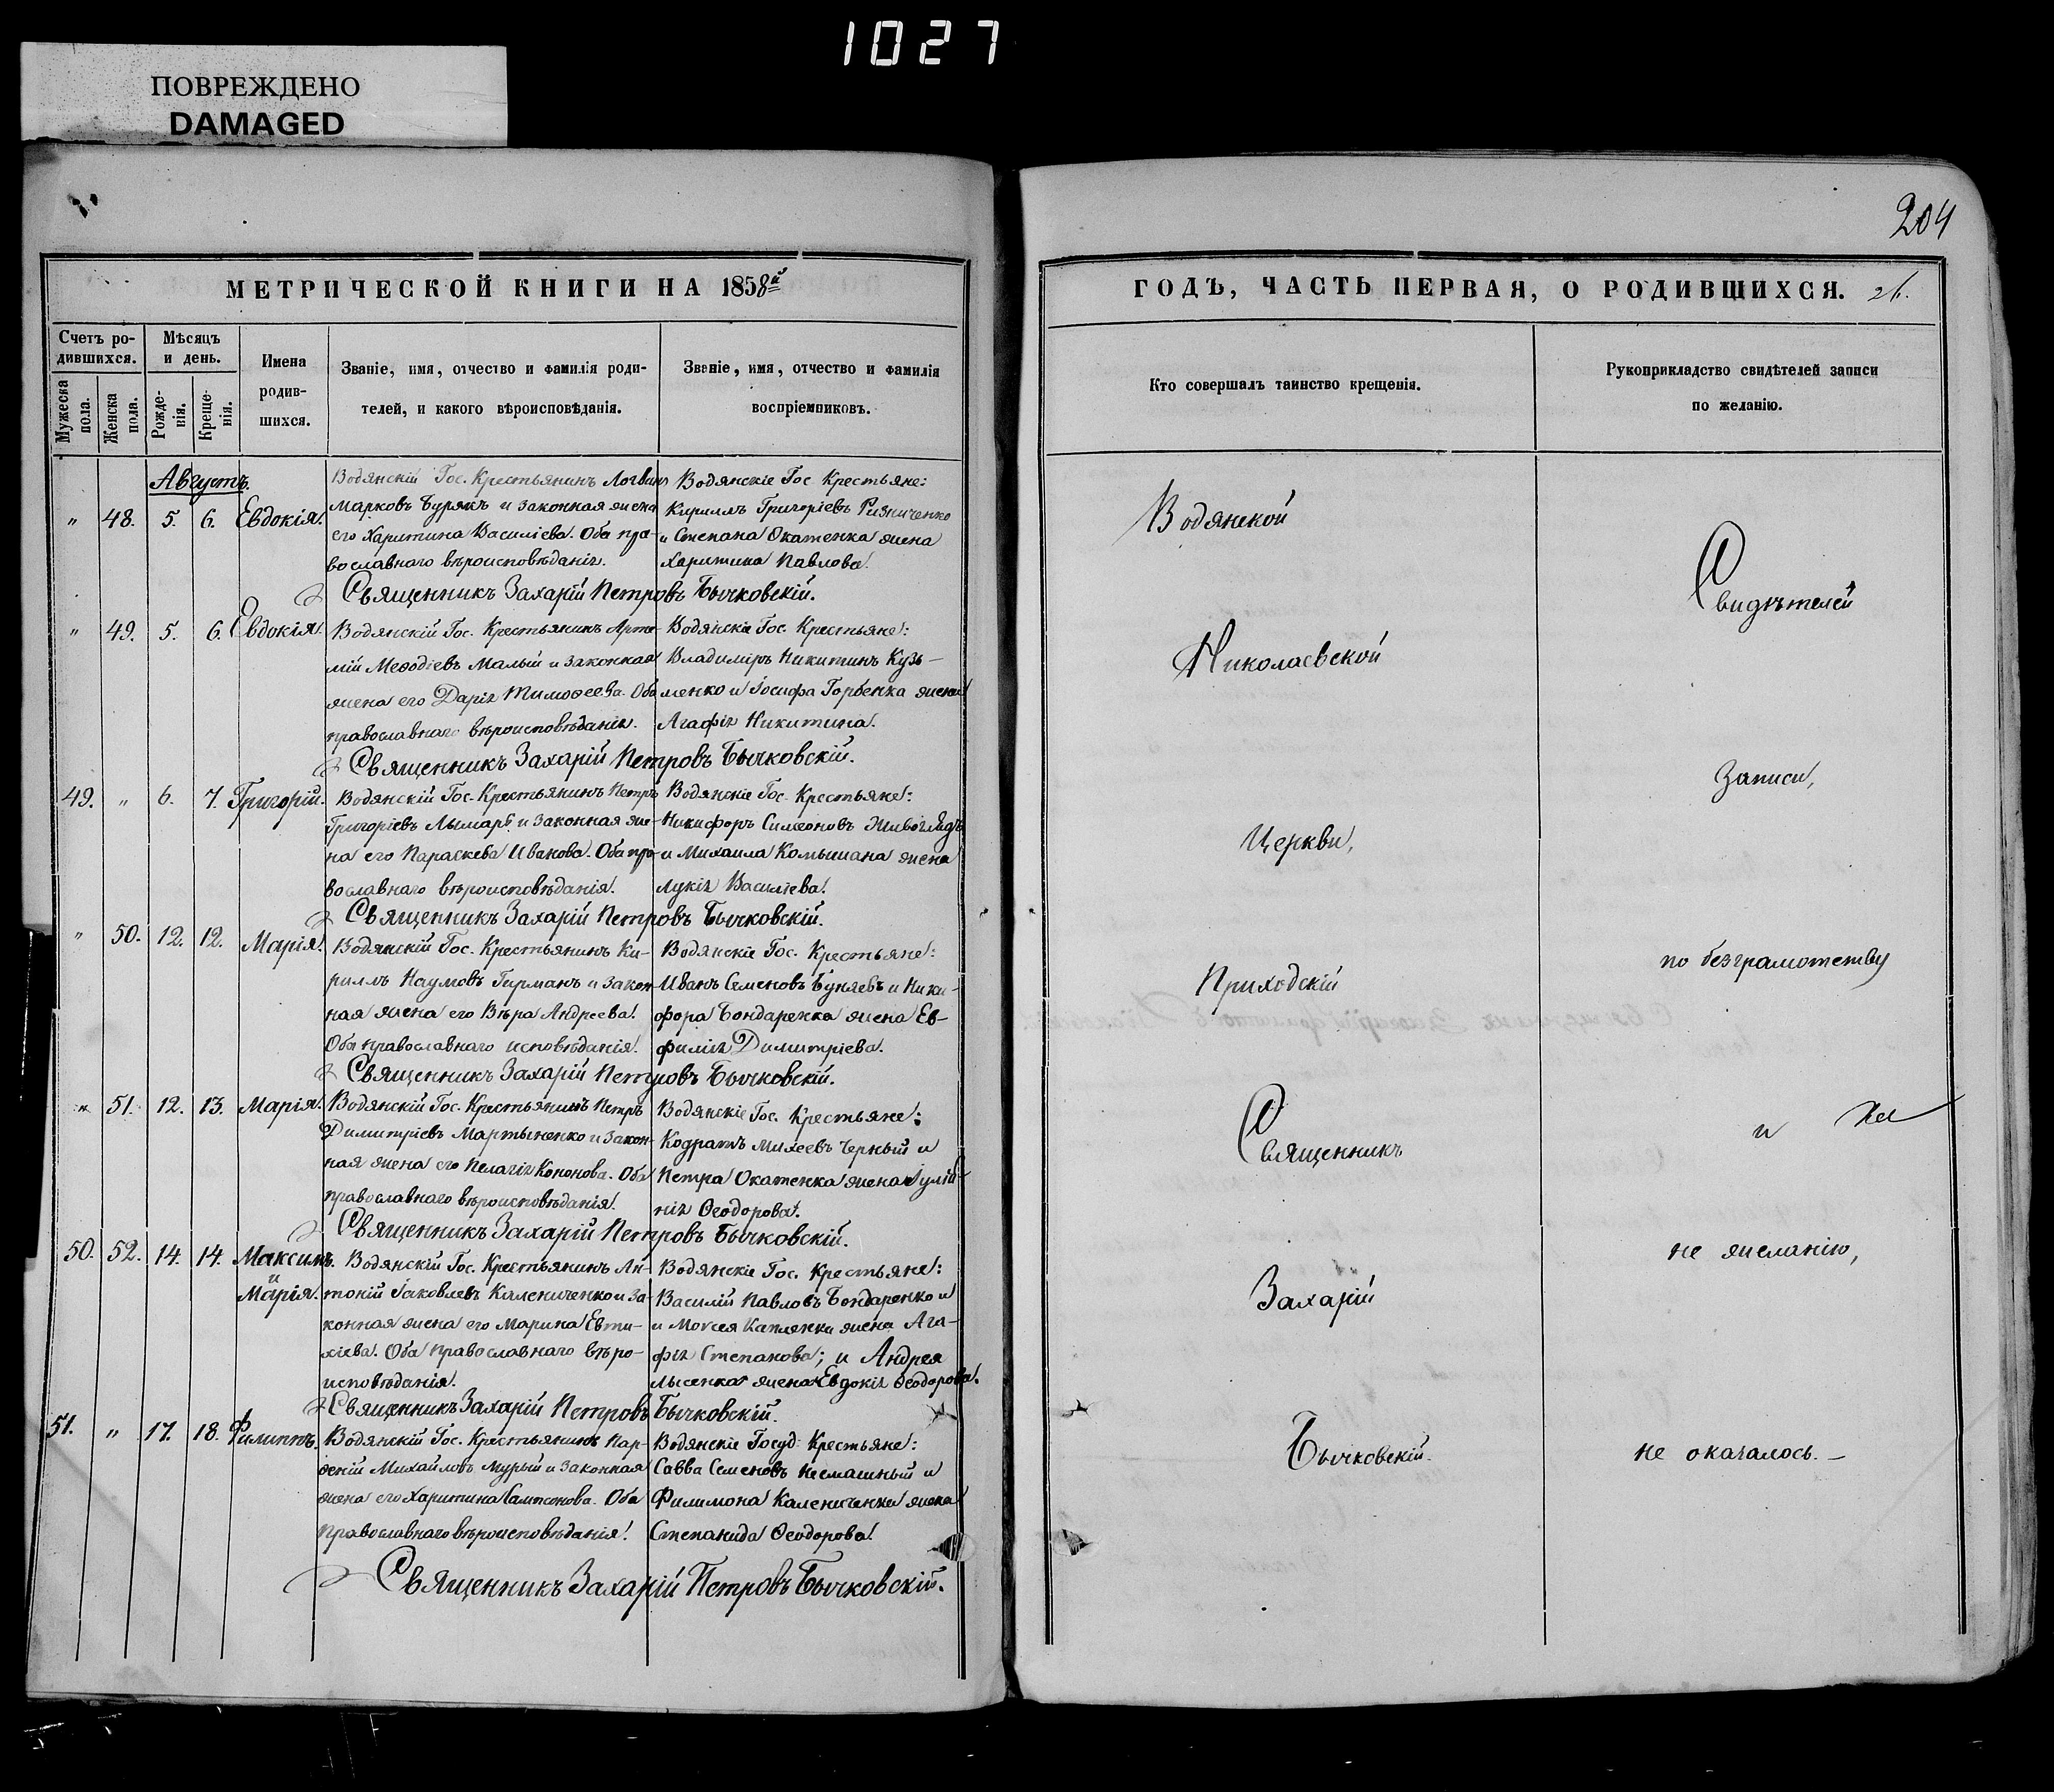 1027
ПОВРЕЖДЕНО
DAMAGED
204
МЕТРИЧЕСКОЙ КНИГИ НА 1858й
Счетъ ро-
дившихся.
Мужеска пола.
Женска пола.
Мѣсяцъ
и день.
Рожде-
нія.
Креще-
нія.
Имена
родив-
шихся.
Званіе, имя, отчество и фамилія роди-
телей, и какого вѣроисповѣданія.
Званіе, имя, отчество и фамилія
воспріемниковъ.
Августъ.
„ 48. 5. 6. Евдокія.
Водянскій Гос. Крестьянинъ Логвинъ
Марковъ Бурякъ и законная жена
его Харитина Василіева. Оба пра-
вославнаго вѣроисповѣданія.
Водянскіе Гос. Крестьяне:
Кириллъ Григоріевъ Ризниченко
и Степана Окатенка жена
Харитина Павлова.
Священникъ Захарій Петровъ Бычковскій.
„ 49. 5. 6. Евдокія.
Водянскій Гос. Крестьянинъ Арте-
мій Меѳодіевъ Малый и законная
жена его Дарія Тимоѳеева. Оба
православнаго вѣроисповѣданія.
Водянскіе Гос. Крестьяне:
Владиміръ Никитинъ Кузь-
менко и Іосифа Горбенка жена
Агафія Никитина.
Священникъ Захарій Петровъ Бычковскій.
49. „ 6. 7. Григорій.
Водянскій Гос. Крестьянинъ Петръ
Григоріевъ Лымарь и законная же-
на его Параскева Иванова. Оба пра-
вославнаго вѣроисповѣданія.
Водянскіе Гос. Крестьяне:
Никифоръ Симеоновъ Живоглядъ
и Михаила Комышана жена
Лукія Василіева.
Священникъ Захарій Петровъ Бычковскій.
„ 50. 12. 12. Марія.
Водянскій Гос. Крестьянинъ Ки-
риллъ Наумовъ Германъ и закон-
ная жена его Вѣра Андреева.
Оба православнаго исповѣданія.
Водянскіе Гос. Крестьяне:
Иванъ Семеновъ Буняевъ и Ники-
фора Бондаренка жена Ев-
фимія Димитріева.
Священникъ Захарій Петровъ Бычковскій.
„ 51. 12. 13. Марія.
Водянскій Гос. Крестьянинъ Петръ
Димитріевъ Мартыненко и закон-
ная жена его Пелагія Кононова. Оба
православнаго вѣроисповѣданія.
Водянскіе Гос. Крестьяне:
Кодратъ Михеевъ Черный и
Петра Окатенка жена Іуліа-
нія Ѳеодорова.
Священникъ Захарій Петровъ Бычковскій.
50. 52. 14. 14. Максимъ
и
Марія.
Водянскій Гос. Крестьянинъ Ан-
тоній Іаковлевъ Калениченко и за-
конная жена его Марина Евти-
хіева. Оба православнаго вѣро-
исповѣданія.
Водянскіе Гос. Крестьяне:
Василій Павловъ Бондаренко и
и Моѵсея Каплянки жена Ага-
фія Степанова; и Андрея
Лысенка жена Евдокія Ѳеодорова.
Священникъ Захарій Петровъ Бычковскій.
51. „ 17. 18. Филиппъ.
Водянскій Гос. Крестьянинъ Пар-
ѳеній Михайловъ Мурый и законная
жена его Харитина Сампсонова. Оба
православнаго вѣроисповѣданія.
Водянскіе Госуд. Крестьяне:
Савва Семеновъ Несмашный и
Филимона Калениченка жена
Степанида Ѳеодорова.
Священникъ Захарій Петровъ Бычковскій.
ГОДЪ, ЧАСТЬ ПЕРВАЯ, О РОДИВШИХСЯ.
Кто совершалъ таинство крещенія.
Рукоприкладство свидѣтелей записи
по желанію.
Водянской
Николаевской
Церкви,
Приходскій
Священникъ
Захарій
Бычковскій.
Свидѣтелей
Записи,
по безграмотству
и
не желанію,
не оказалось.